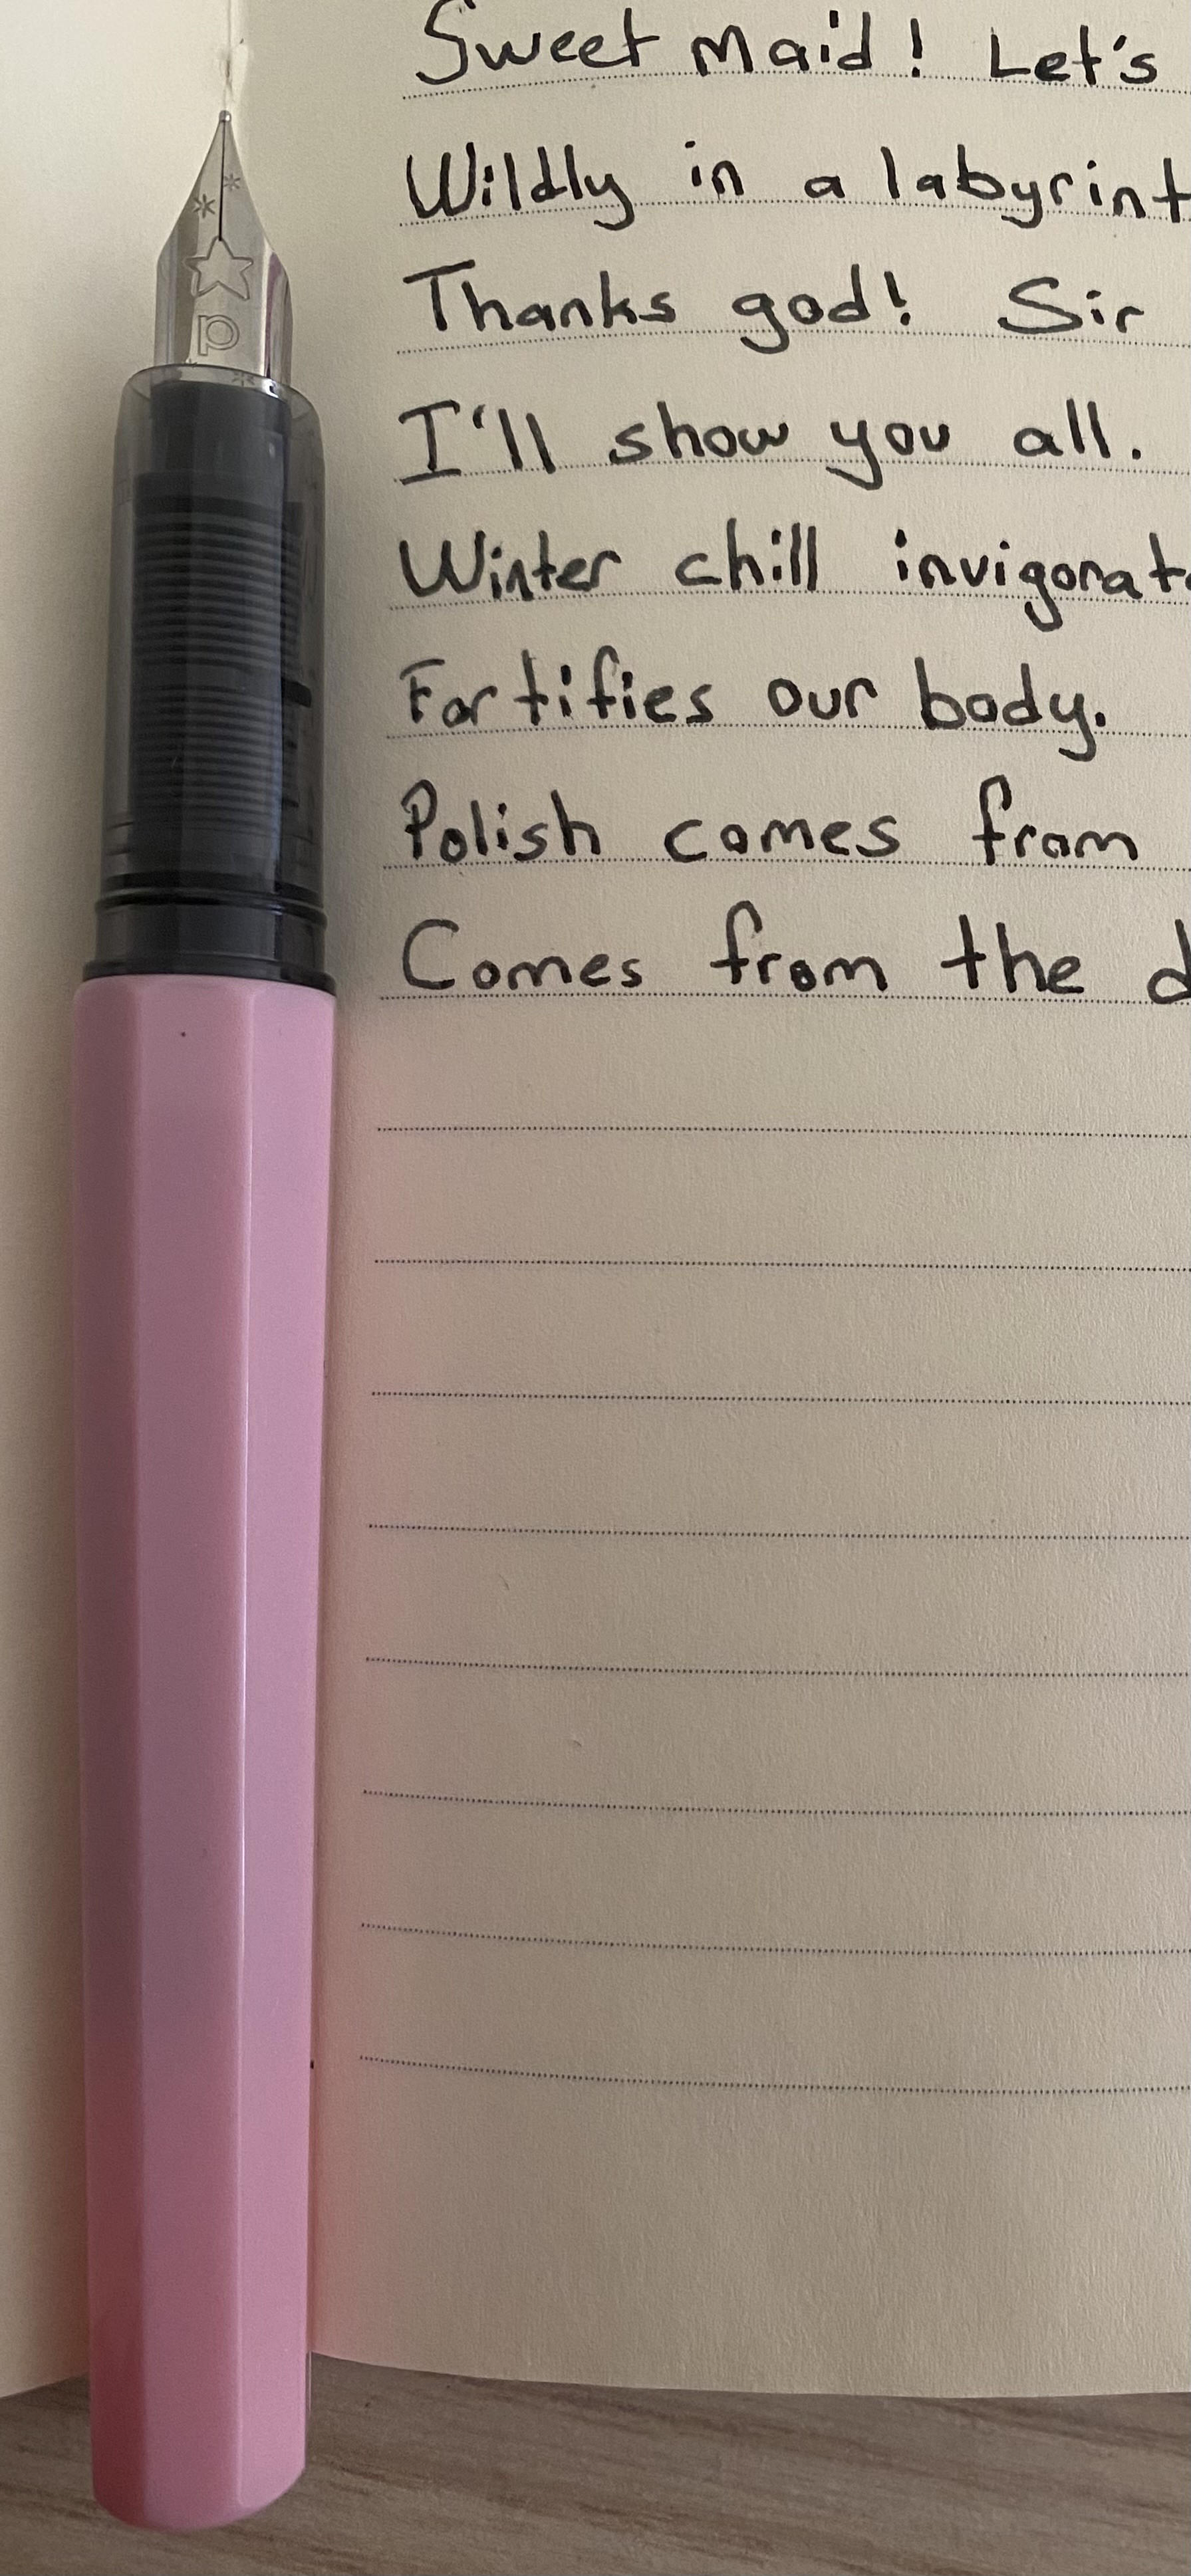 Sweet Maid! Let's
Wildly in a labyrint
Thanks god! Sir
I'll show you all.
Winter chill invigorat
Fortifies our body.
Polish comes from
Comes from the d
p